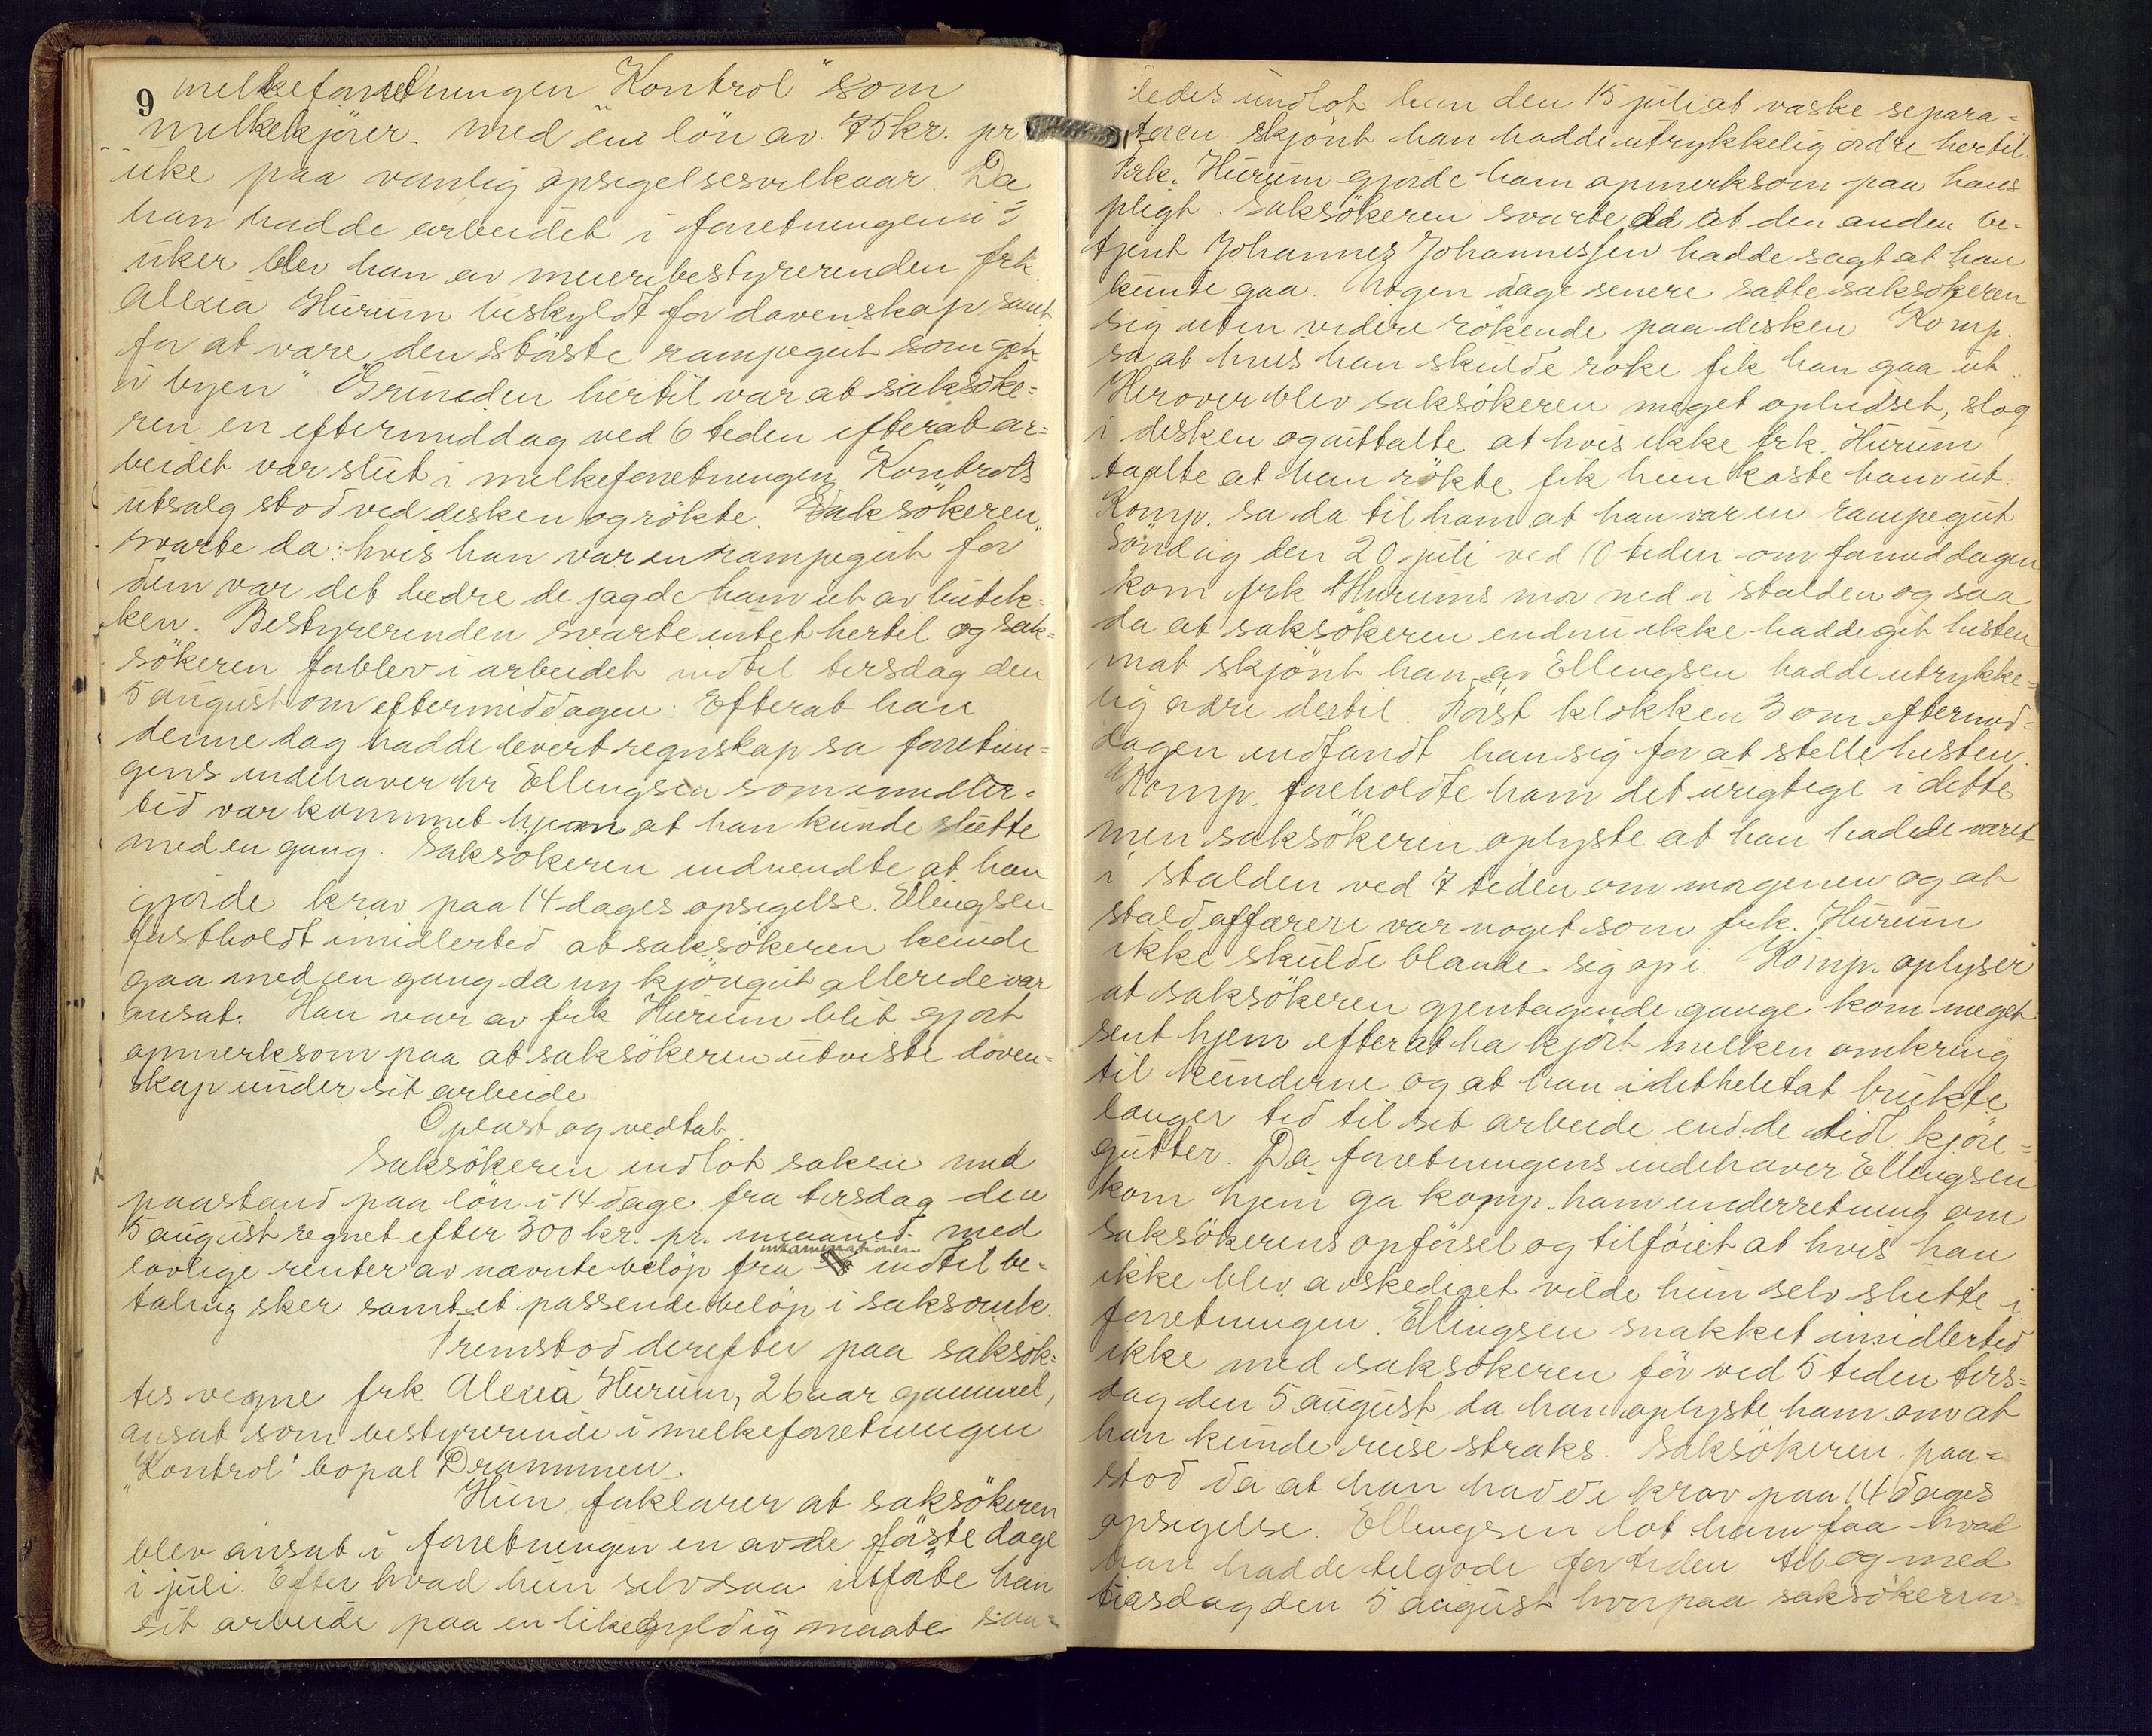 9
melkeforretningen "Kontrol" som
melkekjører. med en lön av 75 kr. pr
uke paa vanlig opsigelsesvilkaar. Da
han hadde arbeidet i forretningen i 2
uker blev han av meieribestyrerinden frk.
Alexia Hurum beskyldt for dovenskap samt
for at være "den støste rampegut som gik
i byen" Grunden hertil var at saksøke=
ren en eftermiddag ved 6 tiden efterat ar=
beidet var slut i melkeforretningen Kontrols
utsalg stod ved desken og rökte. Saksökeren
svarte da: hvis han var en rampegut for
dem var det bedre de jagde ham ut av butik=
ken. Bestyrerinden svarte intet hertil og sak=
sökeren forblev i arbeidet indtil tirsdag den
5 august om eftermiddagen. Efterat han
denne dag hadde levert regnskap sa forretnin=
gens indehaver hr Ellingsen som imidler=
tid var kommet hjem at han kunde slutte
med en gang. Saksökeren indvendte at han
gjorde krav paa 14 dages opsigelse. Ellingsen
fastholdt imidlertid at saksökeren kunde
gaa med en gang da ny kjöregut allerede var
ansat. Han var av frk Hurum blit gjort
opmerksom paa at saksökeren utviste doven=
skap under sit arbeide
Oplæst og vedtat
Saksökeren indlot saken med
paastand paa lön i 14 dage fra tirsdag den
5 august regnet efter 300 kr. pr. maaned med
inkaminationen
lovlige renter av nævnte belöp fra indtil be-
taling sker samt et passende belöp i saksomk.
Fremstod derefter paa saksök=
tes vegne frk Alexia Hurum, 26 aar gammel,
ansat som bestyrerinde i melkeforretningen
"Kontrol" bopæl Drammen.
Hun forklarer at saksökeren
blev ansat i forretningen en av de förste dage
i juli. Efter hvad hun selv saa utförte han
sit arbeide paa en likegyldig maate saa=
ledes undlot han den 15 juli at vaske separa=
toren skjönt han hadde utrykkelig ordre hertil.
Frk. Hurum gjorde ham opmerksom paa hans
pligt. Saksökeren svarte da at den anden be-
tjent Johannes Johannessen hadde sagt at han
kunde gaa. Nogen dage senere satte saksökeren
sig uten videre rökende paa desken. Komp.
sa at hvis han skulde röke fik han gaa ut.
Herover blev saksökeren meget ophidset, slog
i desken og uttalte at hvis ikke frk. Hurum
taalte at han rökte fik hun kaste ham ut.
Komp. sa da til ham at han var en rampegut
Söndag den 20 juli ved 10 tiden om formiddagen
kom frk Hurums mor ned i stalden og saa
da at saksökeren endnu ikke hadde git hesten
mat skjönt han av Ellingsen hadde utrykke=
lig ordre dertil. Först klokken 3 om eftermid=
dagen indfandt han sig for at stelle hesten.
Komp. foreholdte ham det urigtige i dette
men saksökeren oplyste at han hadde været
i stalden ved 7 tiden om morgenen og at
staldaffærer var noget som frk. Hurum
ikke skulde blande sig op i. Komp. oplyser
at saksökeren gjentagende gange kom meget
sent hjem efter at ha kjört melken omkring
til kunderne og at han i det hele tat brukte
længer tid til sit arbeide end de tidl. kjöre=
gutter. Da forretningens indehaver Ellingsen
kom hjem ga komp. ham underretning om
saksökerens opförsel og tilföiet at hvis han
ikke blev avskediget vilde hun selv slutte i
forretningen. Ellingsen snakket imidlertid
ikke med saksökeren för ved 5 tiden tirs=
dag den 5 august da han oplyste ham om at
han kunde reise straks. Saksökeren paa=
stod da at han hadde krav paa 14 dages
opsigelse. Ellingsen lot ham faa hvad
han hadde tilgode for tiden til og med
tirsdag den 5 august hvorpaa saksökeren